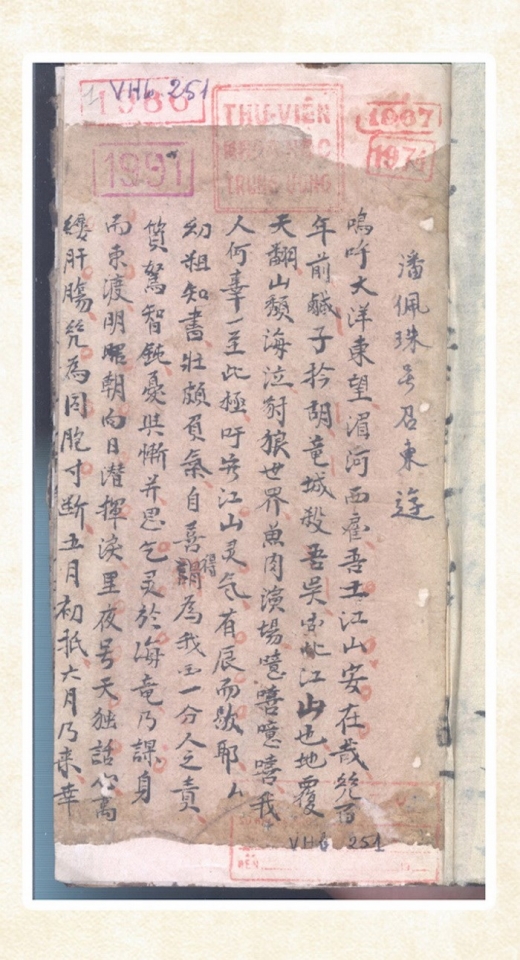 VHb 251
1986
THƯ-VIỆN
TRUNG ƯƠNG
1967
1991
1971
潘佩珠号召東遊
嗚呼大洋東望湄河西雇吾土江山安在哉
年前鹹子於胡竜城殺吾吳 此江山也地覆
天翻山頹海泣豺狼世界魚肉演場噫嘻噫嘻我
人何辜一至此極吁嗟江山灵气有辰而歇耶
幼粗知書壯頗負氣自喜謂得為我国一分人之責
質駑智鈍憂與慚并思乞灵於海竜乃謀身
而東渡明曙朝向日潜揮淚里夜号天独話心
肝腸 為同胞寸断五月初祇六月乃来
VHb 251